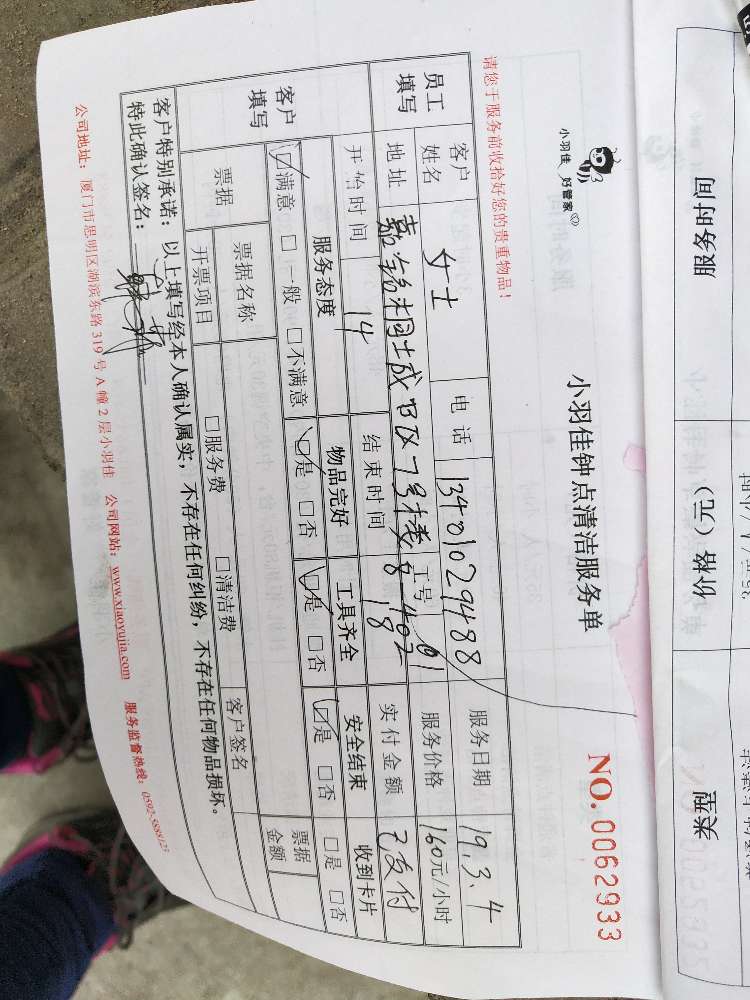 小羽佳 好管家
小羽佳钟点清洁服务单
NO. 0062933
请您于服务前收拾好您的贵重物品!
员工填写
客户姓名 女士 电话 13401029488 服务日期 19.3.4
地址 B区7号楼 8-402 工号 服务价格 160元/小时
开始时间 14 结束时间 18 实付金额 已支付
客户填写
服务态度 物品完好 工具齐全 安全结束 收到卡片
☑满意 □一般 □不满意 ☑是 □否 ☑是 □否 ☑是 □否 □是 □否
票据 票据名称 客户签名 票据金额
开票项目 □服务费 □清洁费
客户特别承诺:以上填写经本人确认属实,不存在任何纠纷,不存在任何物品损坏。
特此确认签名:
公司地址:厦门市思明区湖滨东路319号A幢2层小羽佳 公司网站:www.xiaoyujia.com 服务监督热线:0592-5888123
服务时间 价格(元) 类型